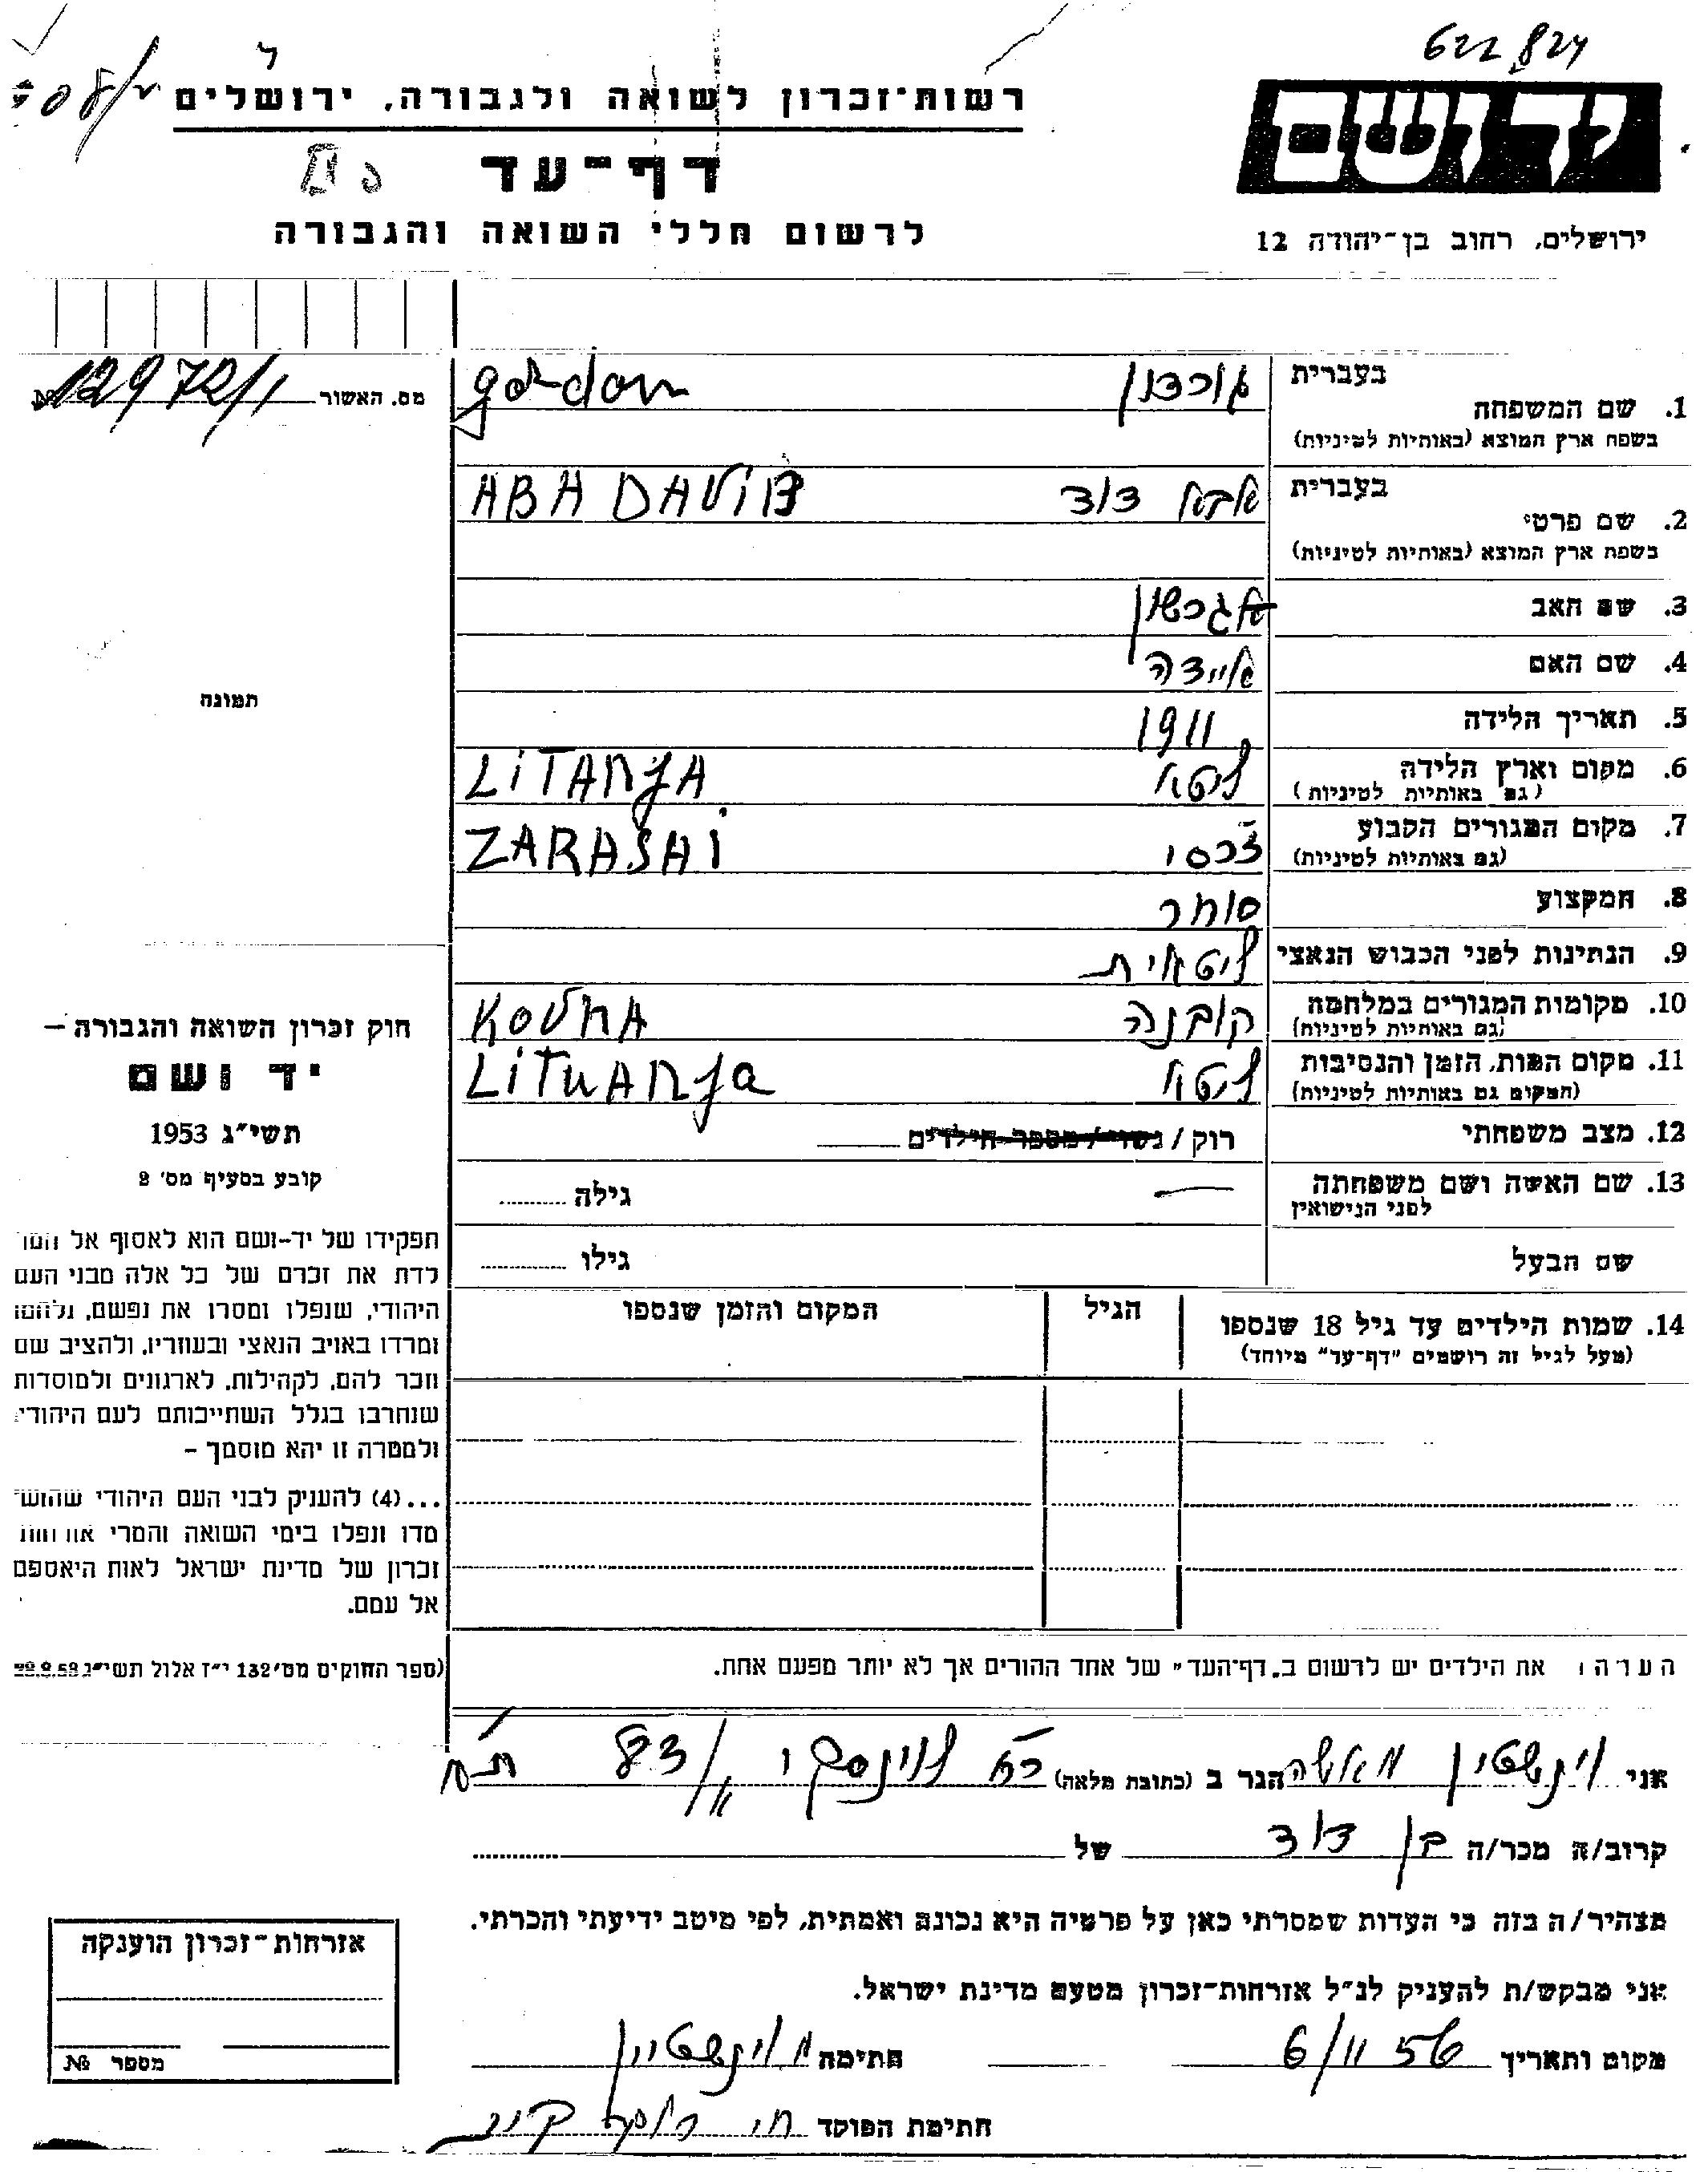 622,824
רשות־זכרון לשואה ולגבורה, ירושלים
ידושם
דף־עד
לרשום חללי השואה והגבורה
ירושלים, רחוב בן־יהודה 12
מס. האשור № 12972/1
1. שם המשפחה בעברית גורדון gordon
בשפת ארץ המוצא (באותיות לטיניות)
2. שם פרטי בעברית אבא דוד ABA DAVID
בשפת ארץ המוצא (באותיות לטיניות)
3. שם האב
4. שם האם איידה
5. תאריך הלידה 1911
6. מקום וארץ הלידה ליטא LiTANJA
(גם באותיות לטיניות)
7. מקום המגורים הקבוע זרסי ZARASAI
(גם באותיות לטיניות)
8. המקצוע סוחר
9. הנתינות לפני הכבוש הנאצי ליטאית
10. מקומות המגורים במלחמה קובנה KOVNA
(גם באותיות לטיניות)
11. מקום המות, הזמן והנסיבות ליטא LiTuANJa
(המקום גם באותיות לטיניות)
12. מצב משפחתי רוק / נשוי / מספר הילדים
13. שם האשה ושם משפחתה — גילה
לפני הנישואין
שם הבעל גילו
14. שמות הילדים עד גיל 18 שנספו הגיל המקום והזמן שנספו
(מעל לגיל זה רושמים "דף־עד" מיוחד)
תמונה
חוק זכרון השואה והגבורה –
יד ושם
תשי"ג 1953
קובע בסעיף מס' 2
תפקידו של יד-ושם הוא לאסוף אל המו
לדת את זכרם של כל אלה מבני העם
היהודי, שנפלו ומסרו את נפשם, נלחמו
ומרדו באויב הנאצי ובעוזריו, ולהציב שם
וזכר להם, לקהילות, לארגונים ולמוסדות
שנחרבו בגלל השתייכותם לעם היהודי
ולמטרה זו יהא מוסמך –
...(4) להעניק לבני העם היהודי שהוש
מדו ונפלו בימי השואה והמרי אזרחות
זכרון של מדינת ישראל לאות היאספם
אל עמם.
(ספר החוקים מס' 132 י"ז אלול תשי"ג
הערה: את הילדים יש לרשום ב„דף־העד" של אחד ההורים אך לא יותר מפעם אחת.
אני וינשטין מאשה הגר ב (כתובת מלאה) לוינסקי 83 ת״א
קרוב/ה מכר/ה בן דוד של
מצהיר/ה בזה כי העדות שמסרתי כאן על פרטיה היא נכונה ואמתית, לפי מיטב ידיעתי והכרתי.
אני מבקש/ת להעניק לנ"ל אזרחות־זכרון מטעם מדינת ישראל.
מקום ותאריך 6/11 56 חתימה מ וינשטיין
חתימת הפוקד
אזרחות־זכרון הוענקה
מספר №